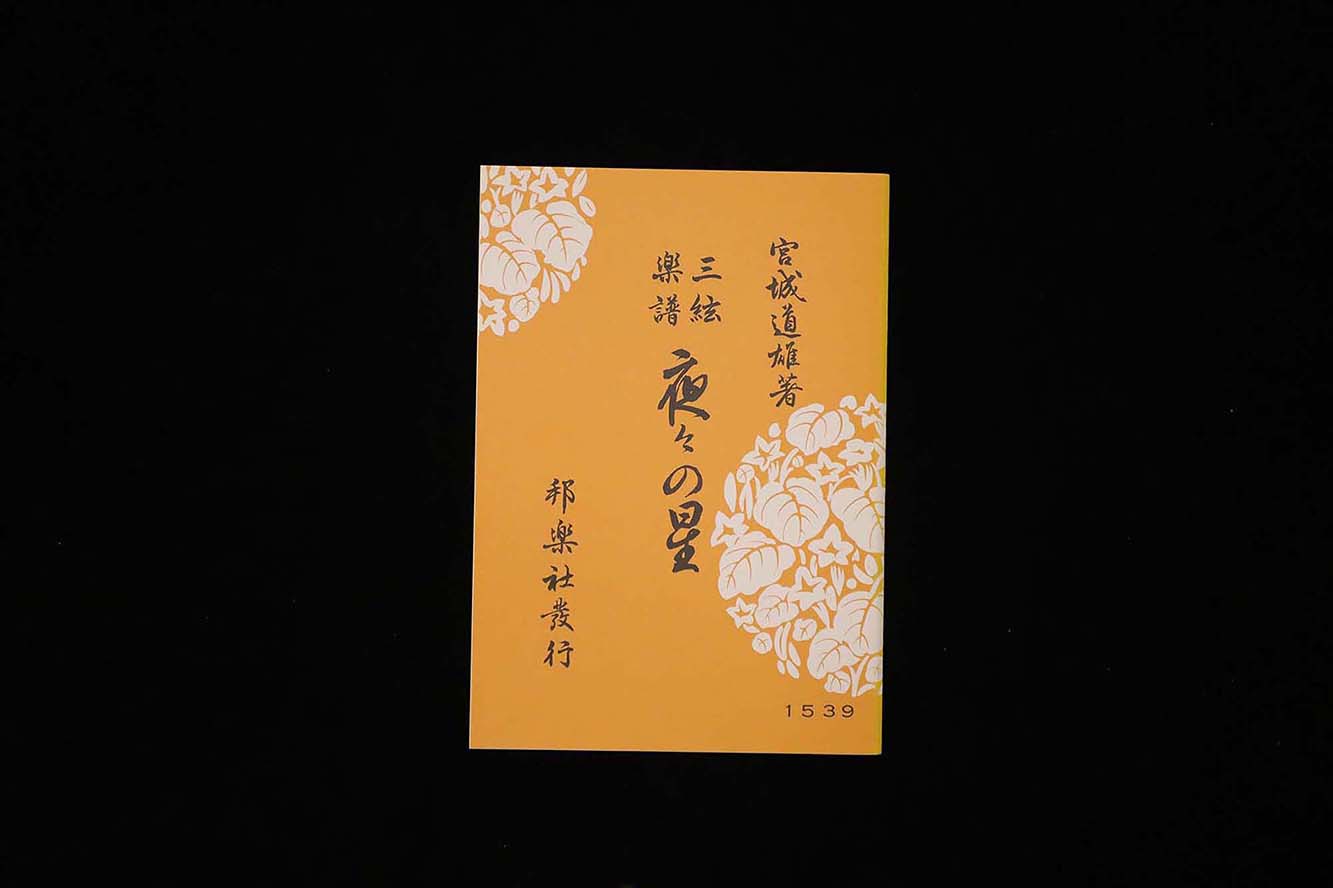 宮城道雄著
三絃
楽譜
夜々の星
邦楽社發行
1539